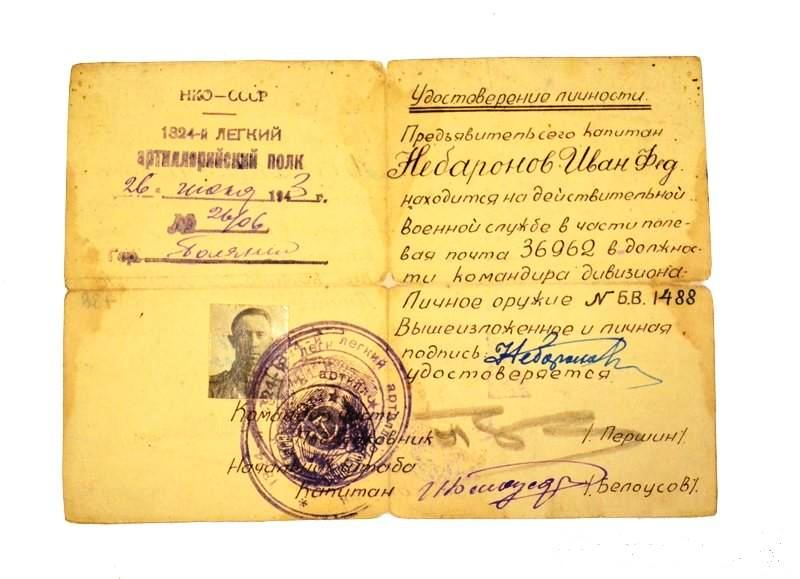 НКО—СССР
1324-й ЛЕГКИЙ
артиллерийский полк
26 1943 г.
№ 26/06
Гор.
Удостоверение личности.
Предъявитель сего капитан
Небаронов Иван Фед.
находится на действительной
военной службе в части поле-
вая почта 36962 в должнос-
ти командира дивизиона.
Личное оружие № Б.В. 1488
Вышеизложенное и личная
подпись Небаронов
удостоверяется
Командир части
Подполковник /. Першин/.
Начальник штаба
Капитан /.Белоусов/.